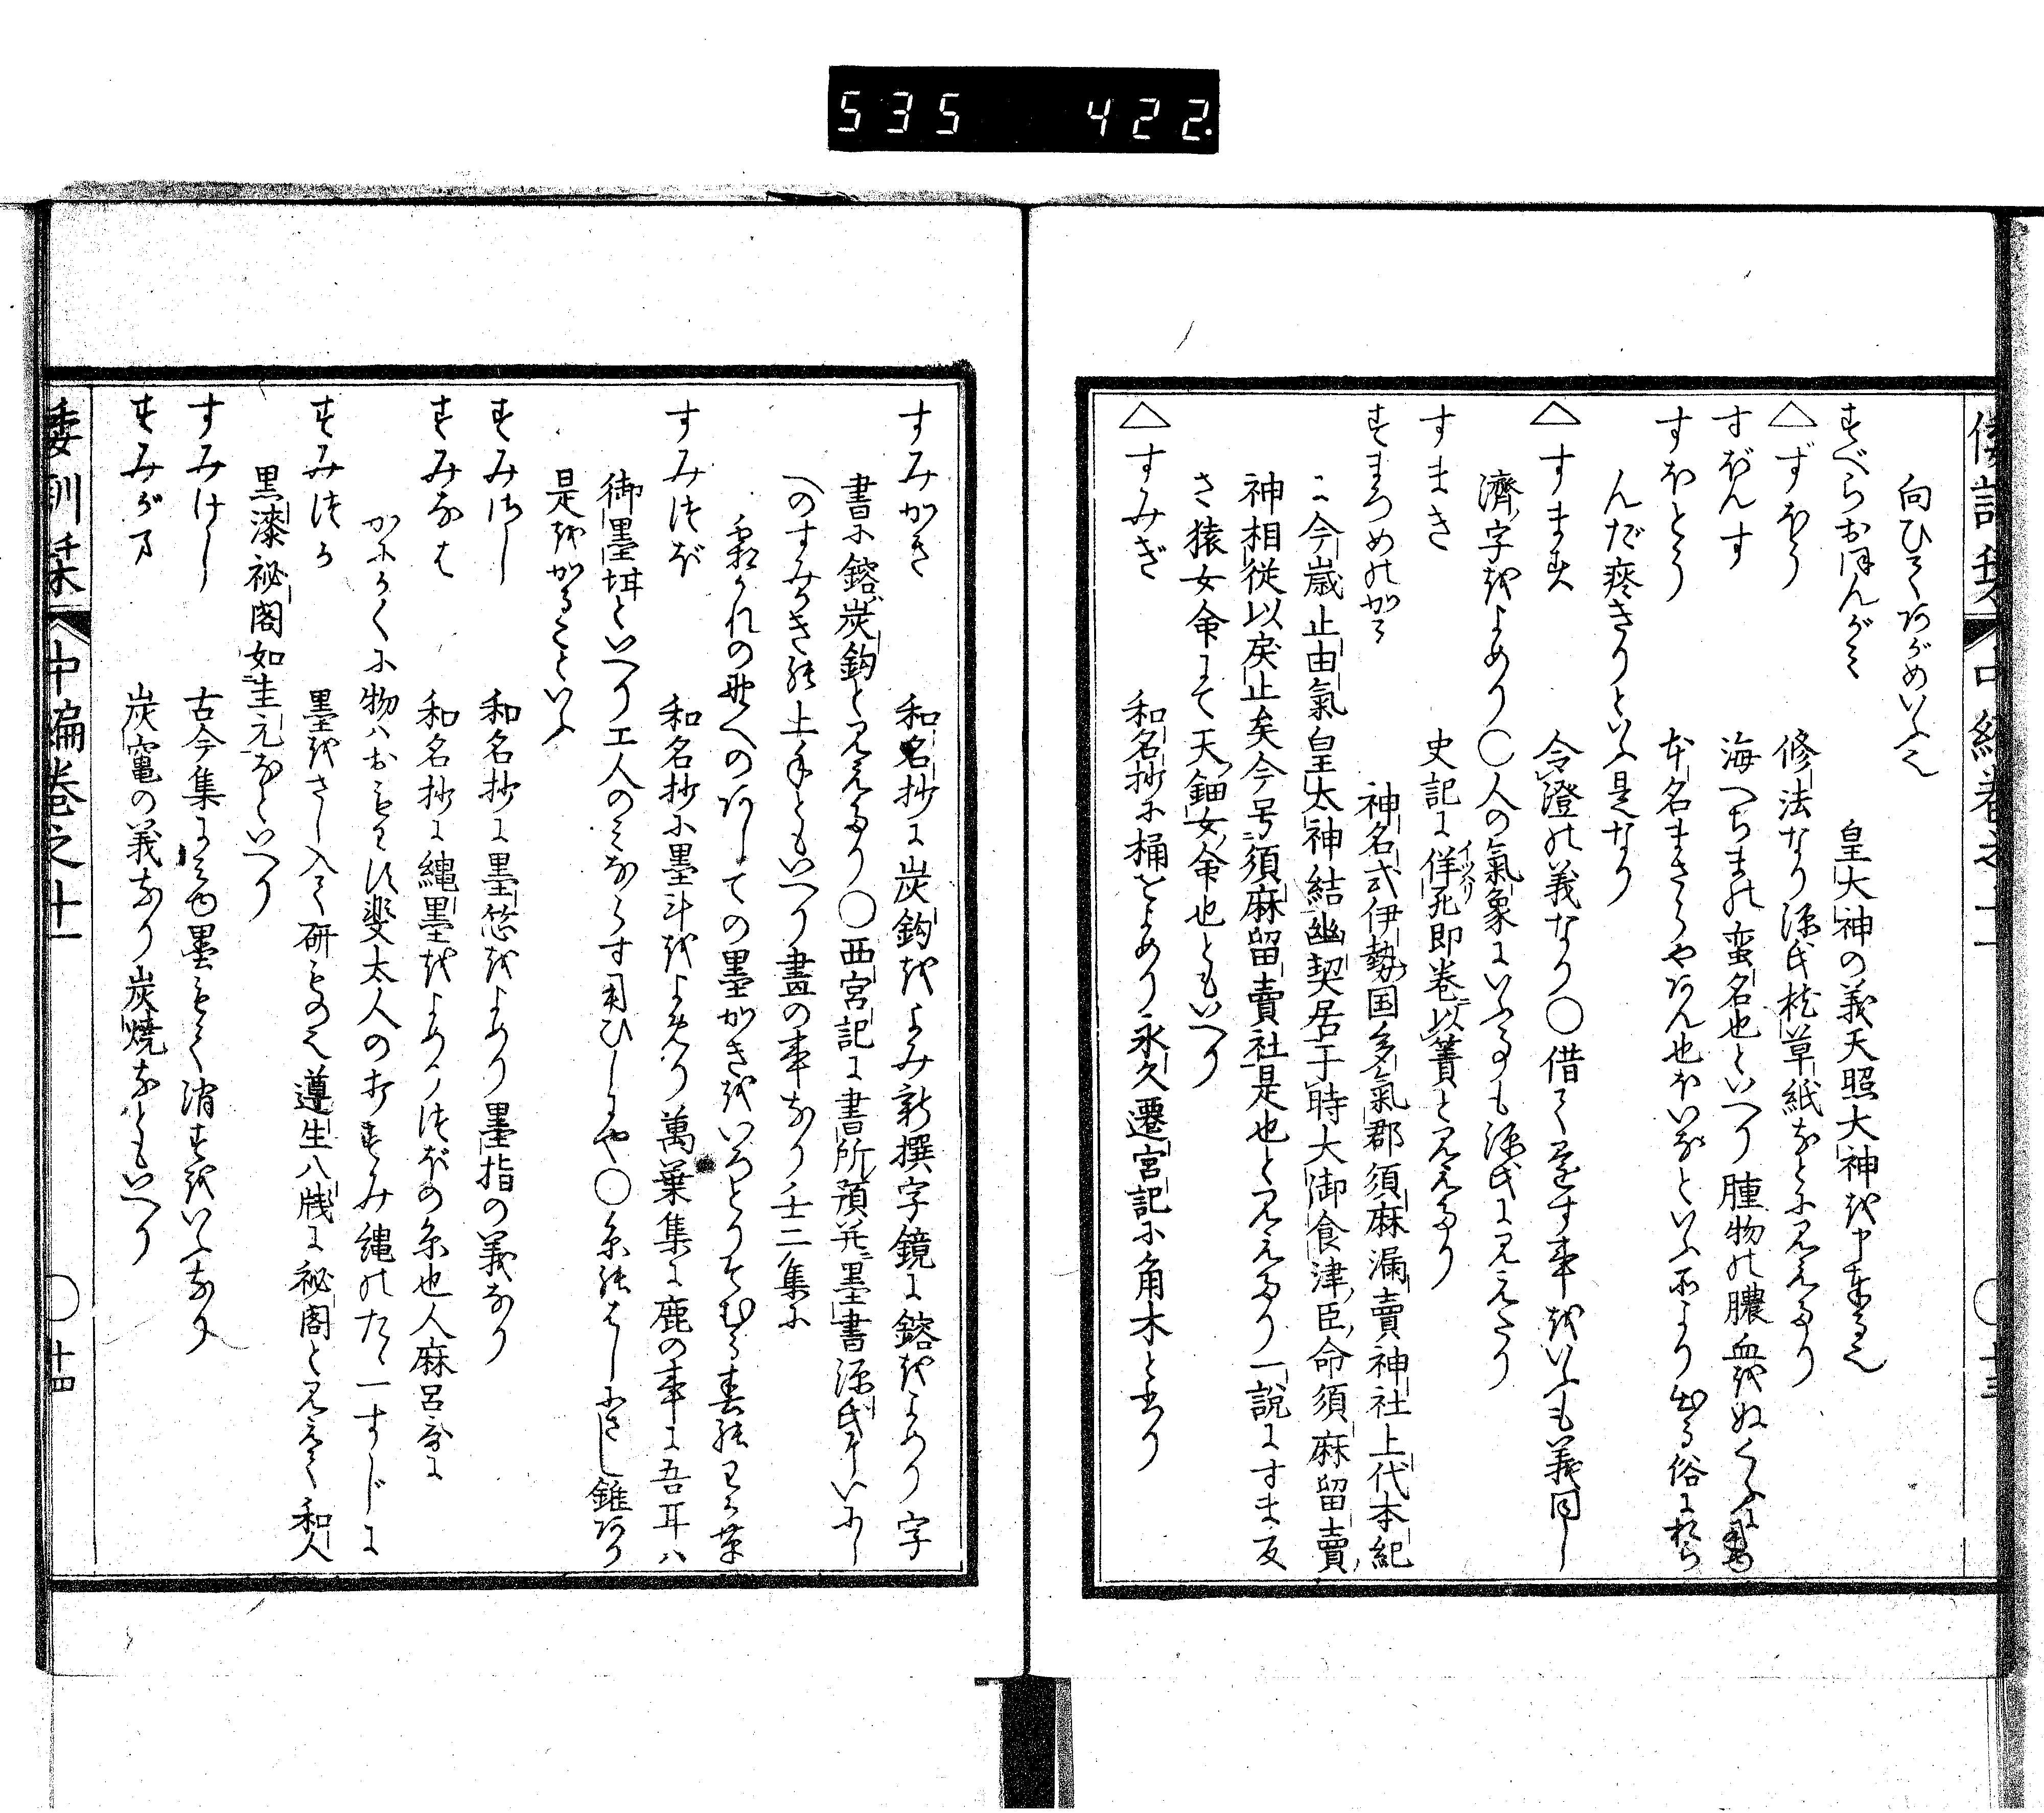 535 422.
向ひてあがめいふ也
すべらおほんがミ 皇大神の義天照大神を申奉る也
△ずほう 修法なり源氏枕草紙なとに見えたり
すぼんす 海へちまの蛮名也といへり腫物の膿血をぬくに用
すほとり 本名まきらやあん也ホいなといふ所より出る俗に
んだ疼きりといふ是なり
△すます 令澄の義なり○借てをす事をいふも義同し
濟字をよめり○人の氣象にいふるも源氏に見えたり
すまき 史記に佯死即巻以簀と見えたり
すまろめのかミ 神名式伊勢国多氣郡須麻漏賣神社上代本紀
に今歳止由氣皇太神結幽契居于時大御食津臣命須麻留賣
神相從以戻止矣今号須麻留賣社是也と見えたり一説にすま反
さ猿女命にて天鈿女命也ともいへり
△すみぎ 和名抄に桷をよめり永久遷宮記に角木と書り
すみかき 和名抄に炭鈎をよみ新撰字鏡に鎔をよめり字
書に鎔炭鈎と見えたり○西宮記に書所預并墨書源氏にいにし
へのすみかき能上手ともいへり畫の事なり壬二集に
霜かれの野へのあしての墨がきをいろとりそむる春のわか草
すみつぼ 和名抄に墨斗をよめり萬葉集に鹿の事に吾耳ハ
御墨坩といへり工人のミならす用ひしにや○糸能はしにさし錐あり
是をかることいふ
すみさし 和名抄に墨𫁿をよめり墨指の義なり
すみなは 和名抄に縄墨をよめりつぼの糸也人麻呂哥に
かにかくに物ハおもはす斐太人の打すみ縄のたゝ一すしに
すみつか 墨をさし入て研もの也遵生八牋に秘閣と見えて和人
黒漆祕閣如圭元なといへり
すみけし 古今集にみゆ墨もて消すをいふなり
すみがま 炭竃の義なり炭燒なともいへり
倭訓栞 中編巻之十一 ○十四